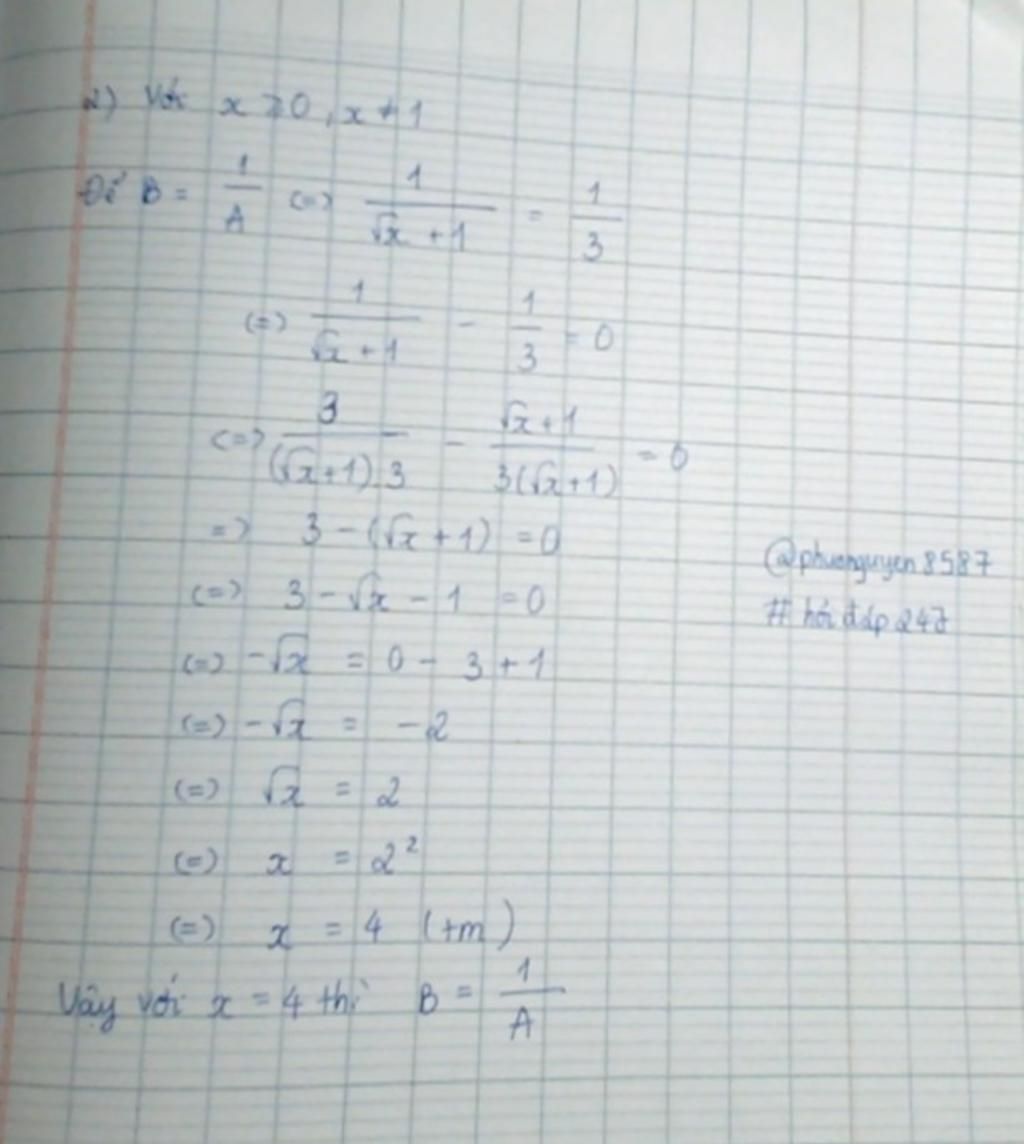 2) Với x ≥ 0, x ≠ 1
Để B = 1/A (=) 1/(√x + 1) = 1/3
(=) 1/(√x + 1) - 1/3 = 0
(=) 3/((√x+1).3) - (√x+1)/(3(√x+1)) = 0
=) 3 - (√x + 1) = 0
(=) 3 - √x - 1 = 0
(=) -√x = 0 - 3 + 1
(=) -√x = -2
(=) √x = 2
(=) x = 2²
(=) x = 4 (tm)
Vậy với x = 4 thì B = 1/A
@phuonguyen8587
# hỏi đáp 247